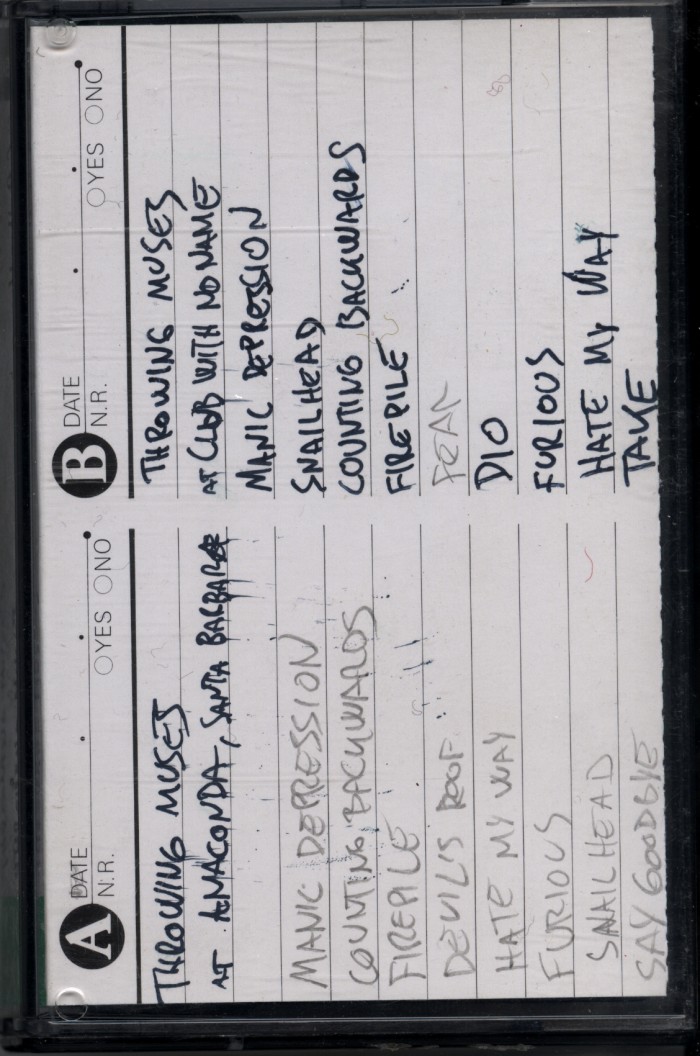 A DATE
N.R.
YES NO
THROWING MUSES
AT ANACONDA, SANTA BARBARA
MANIC DEPRESSION
COUNTING BACKWARDS
FIREPILE
DEVIL'S ROOF
HATE MY WAY
FURIOUS
SNAILHEAD
SAY GOODBYE
B DATE
N.R.
YES NO
THROWING MUSES
AT CLUB WITH NO NAME
MANIC DEPRESSION
SNAILHEAD
COUNTING BACKWARDS
FIREPILE
DIO
FURIOUS
HATE MY WAY
TAKE